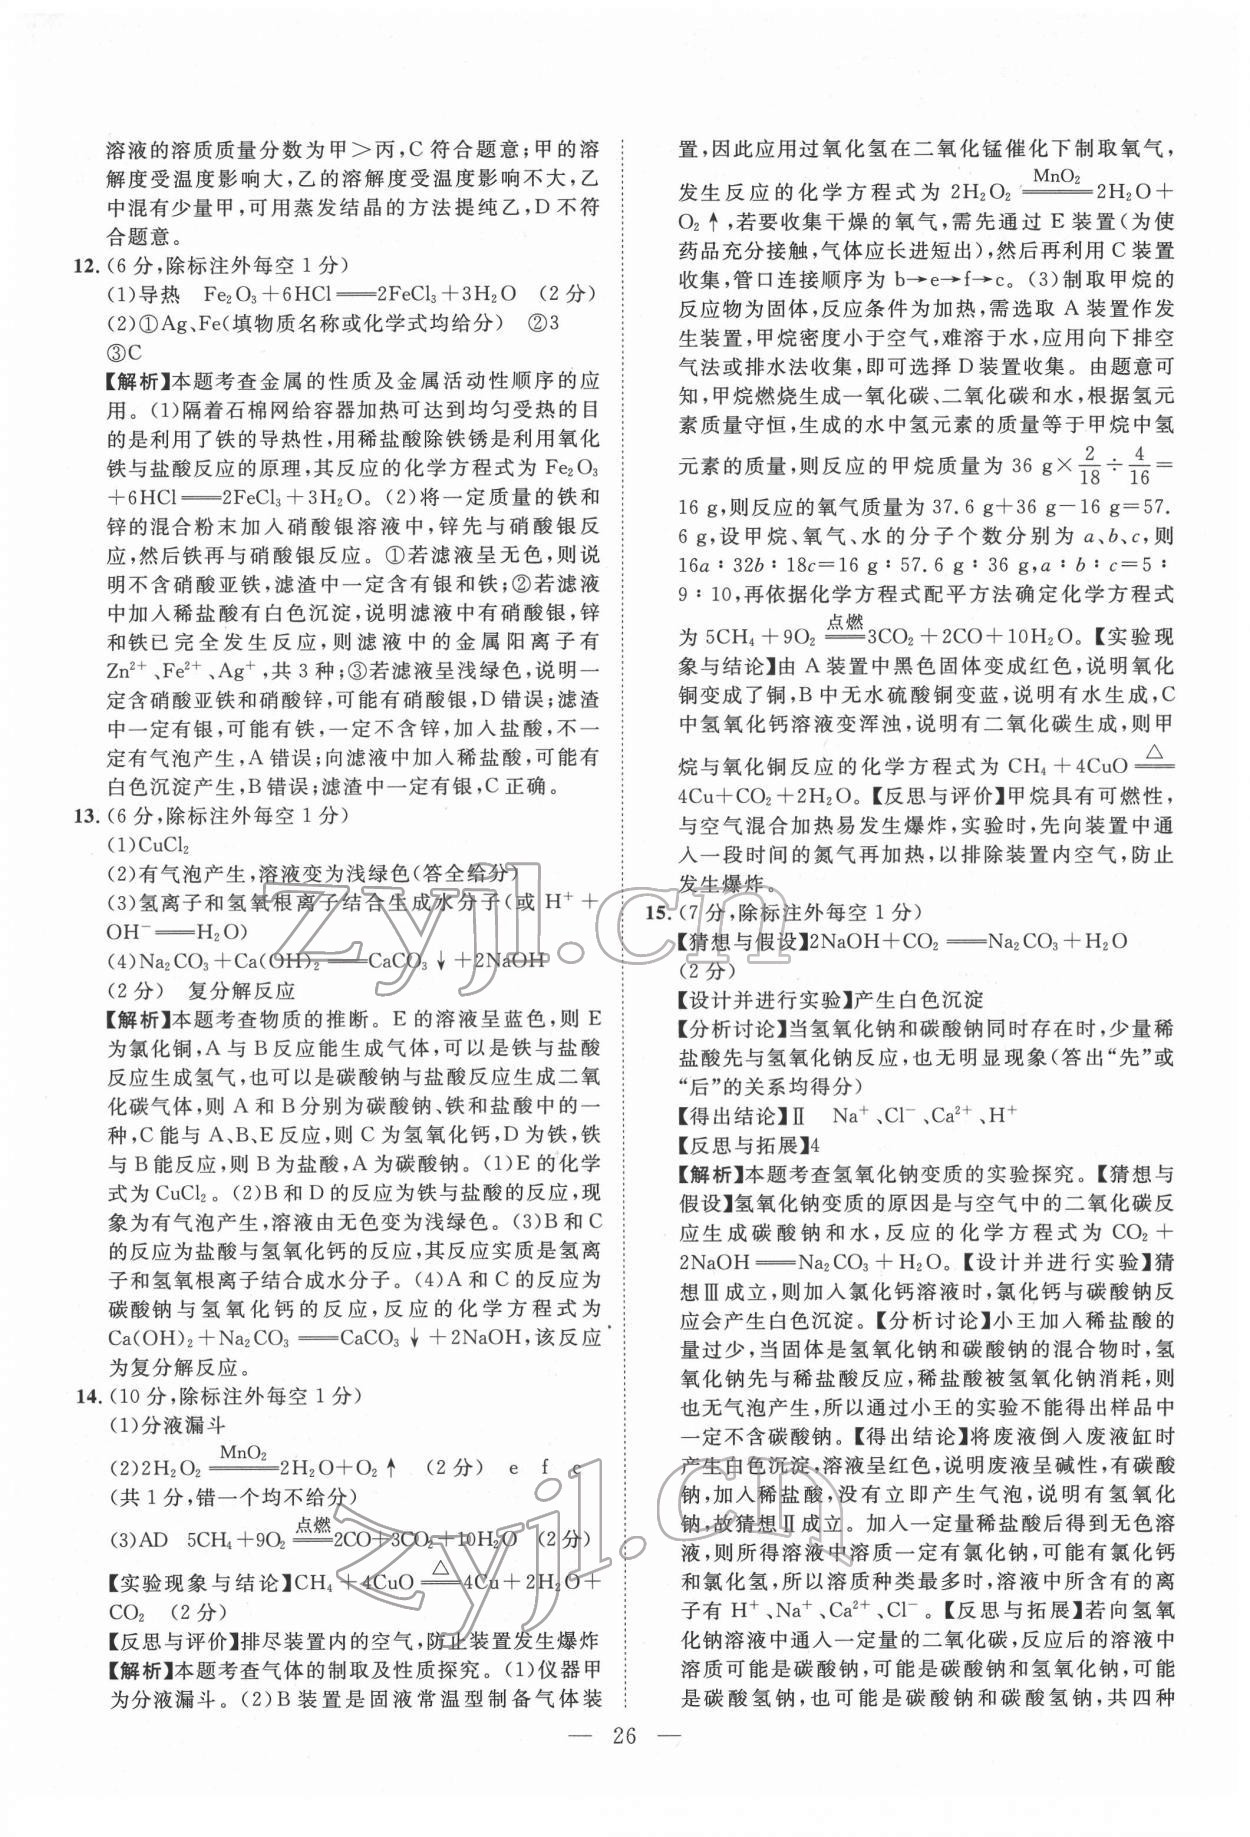 溶液的溶质质量分数为甲＞丙,C符合题意;甲的溶
解度受温度影响大,乙的溶解度受温度影响不大,乙
中混有少量甲,可用蒸发结晶的方法提纯乙,D不符
合题意。
12.(6分,除标注外每空1分)
(1)导热 Fe₂O₃+6HCl══2FeCl₃+3H₂O (2分)
(2)①Ag、Fe(填物质名称或化学式均给分) ②3
③C
【解析】本题考查金属的性质及金属活动性顺序的应
用。(1)隔着石棉网给容器加热可达到均匀受热的目
的是利用了铁的导热性,用稀盐酸除铁锈是利用氧化
铁与盐酸反应的原理,其反应的化学方程式为Fe₂O₃
+6HCl══2FeCl₃+3H₂O。(2)将一定质量的铁和
锌的混合粉末加入硝酸银溶液中,锌先与硝酸银反
应,然后铁再与硝酸银反应。①若滤液呈无色,则说
明不含硝酸亚铁,滤渣中一定含有银和铁;②若滤液
中加入稀盐酸有白色沉淀,说明滤液中有硝酸银,锌
和铁已完全发生反应,则滤液中的金属阳离子有
Zn²⁺、Fe²⁺、Ag⁺,共3种;③若滤液呈浅绿色,则一
定含硝酸亚铁和硝酸锌,可能有硝酸银,D错误;滤渣
中一定有银,可能有铁,一定不含锌,加入盐酸,不一
定有气泡产生,A错误;向滤液中加入稀盐酸,可能有
白色沉淀产生,B错误;滤渣中一定有银,C正确。
13.(6分,除标注外每空1分)
(1)CuCl₂
(2)有气泡产生,溶液变为浅绿色(答全给分)
(3)氢离子和氢氧根离子结合生成水分子(或H⁺+
OH⁻══H₂O)
(4)Na₂CO₃+Ca(OH)₂══CaCO₃↓+2NaOH
(2分) 复分解反应
【解析】本题考查物质的推断。E的溶液呈蓝色,则E
为氯化铜,A与B反应能生成气体,可以是铁与盐酸
反应生成氢气,也可以是碳酸钠与盐酸反应生成二氧
化碳气体,则A和B分别为碳酸钠、铁和盐酸中的一
种,C能与A、B、E反应,则C为氢氧化钙,D为铁,铁
与B能反应,则B为盐酸,A为碳酸钠。(1)E的化学
式为CuCl₂。(2)B和D的反应为铁与盐酸的反应,现
象为有气泡产生,溶液由无色变为浅绿色。(3)B和C
的反应为盐酸与氢氧化钙的反应,其反应实质是氢离
子和氢氧根离子结合成水分子。(4)A和C的反应为
碳酸钠与氢氧化钙的反应,反应的化学方程式为
Ca(OH)₂+Na₂CO₃══CaCO₃↓+2NaOH,该反应
为复分解反应。
14.(10分,除标注外每空1分)
(1)分液漏斗
MnO₂
(2)2H₂O₂══2H₂O+O₂↑ (2分) e f c
(共1分,错一个均不给分)
点燃
(3)AD 5CH₄+9O₂══2CO+3CO₂+10H₂O (2分)
△
【实验现象与结论】CH₄+4CuO══4Cu+2H₂O+
CO₂ (2分)
【反思与评价】排尽装置内的空气,防止装置发生爆炸
【解析】本题考查气体的制取及性质探究。(1)仪器甲
为分液漏斗。(2)B装置是固液常温型制备气体装
置,因此应用过氧化氢在二氧化锰催化下制取氧气,
MnO₂
发生反应的化学方程式为2H₂O₂══2H₂O+
O₂↑,若要收集干燥的氧气,需先通过E装置(为使
药品充分接触,气体应长进短出),然后再利用C装置
收集,管口连接顺序为b→e→f→c。(3)制取甲烷的
反应物为固体,反应条件为加热,需选取A装置作发
生装置,甲烷密度小于空气,难溶于水,应用向下排空
气法或排水法收集,即可选择D装置收集。由题意可
知,甲烷燃烧生成一氧化碳、二氧化碳和水,根据氢元
素质量守恒,生成的水中氢元素的质量等于甲烷中氢
元素的质量,则反应的甲烷质量为36 g×2/18÷4/16=
16 g,则反应的氧气质量为37.6 g+36 g-16 g=57.
6 g,设甲烷、氧气、水的分子个数分别为a、b、c,则
16a∶32b∶18c=16 g∶57.6 g∶36 g,a∶b∶c=5∶
9∶10,再依据化学方程式配平方法确定化学方程式
点燃
为5CH₄+9O₂══3CO₂+2CO+10H₂O。【实验现
象与结论】由A装置中黑色固体变成红色,说明氧化
铜变成了铜,B中无水硫酸铜变蓝,说明有水生成,C
中氢氧化钙溶液变浑浊,说明有二氧化碳生成,则甲
△
烷与氧化铜反应的化学方程式为CH₄+4CuO══
4Cu+CO₂+2H₂O。【反思与评价】甲烷具有可燃性,
与空气混合加热易发生爆炸,实验时,先向装置中通
入一段时间的氮气再加热,以排除装置内空气,防止
发生爆炸。
15.(7分,除标注外每空1分)
【猜想与假设】2NaOH+CO₂══Na₂CO₃+H₂O
(2分)
【设计并进行实验】产生白色沉淀
【分析讨论】当氢氧化钠和碳酸钠同时存在时,少量稀
盐酸先与氢氧化钠反应,也无明显现象(答出“先”或
“后”的关系均得分)
【得出结论】Ⅱ Na⁺、Cl⁻、Ca²⁺、H⁺
【反思与拓展】4
【解析】本题考查氢氧化钠变质的实验探究。【猜想与
假设】氢氧化钠变质的原因是与空气中的二氧化碳反
应生成碳酸钠和水,反应的化学方程式为CO₂+
2NaOH══Na₂CO₃+H₂O。【设计并进行实验】猜
想Ⅲ成立,则加入氯化钙溶液时,氯化钙与碳酸钠反
应会产生白色沉淀。【分析讨论】小王加入稀盐酸的
量过少,当固体是氢氧化钠和碳酸钠的混合物时,氢
氧化钠先与稀盐酸反应,稀盐酸被氢氧化钠消耗,则
也无气泡产生,所以通过小王的实验不能得出样品中
一定不含碳酸钠。【得出结论】将废液倒入废液缸时
产生白色沉淀,溶液呈红色,说明废液呈碱性,有碳酸
钠,加入稀盐酸,没有立即产生气泡,说明有氢氧化
钠,故猜想Ⅱ成立。加入一定量稀盐酸后得到无色溶
液,则所得溶液中溶质一定有氯化钠,可能有氯化钙
和氯化氢,所以溶质种类最多时,溶液中所含有的离
子有H⁺、Na⁺、Ca²⁺、Cl⁻。【反思与拓展】若向氢氧
化钠溶液中通入一定量的二氧化碳,反应后的溶液中
溶质可能是碳酸钠,可能是碳酸钠和氢氧化钠,可能
是碳酸氢钠,也可能是碳酸钠和碳酸氢钠,共四种
— 26 —
zyjl.cn
zyjl.cn